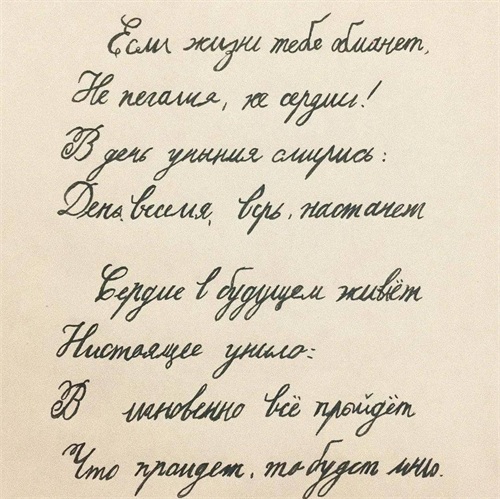 Если жизни тебе обманет,
Не пегалия, не сердии!
В день уныния смирись:
День веселия, верь, настанет
Сердце в будущем живёт
Настоящее уныло:
В мгновенно всё пройдёт
Что пройдет, то будет мило.